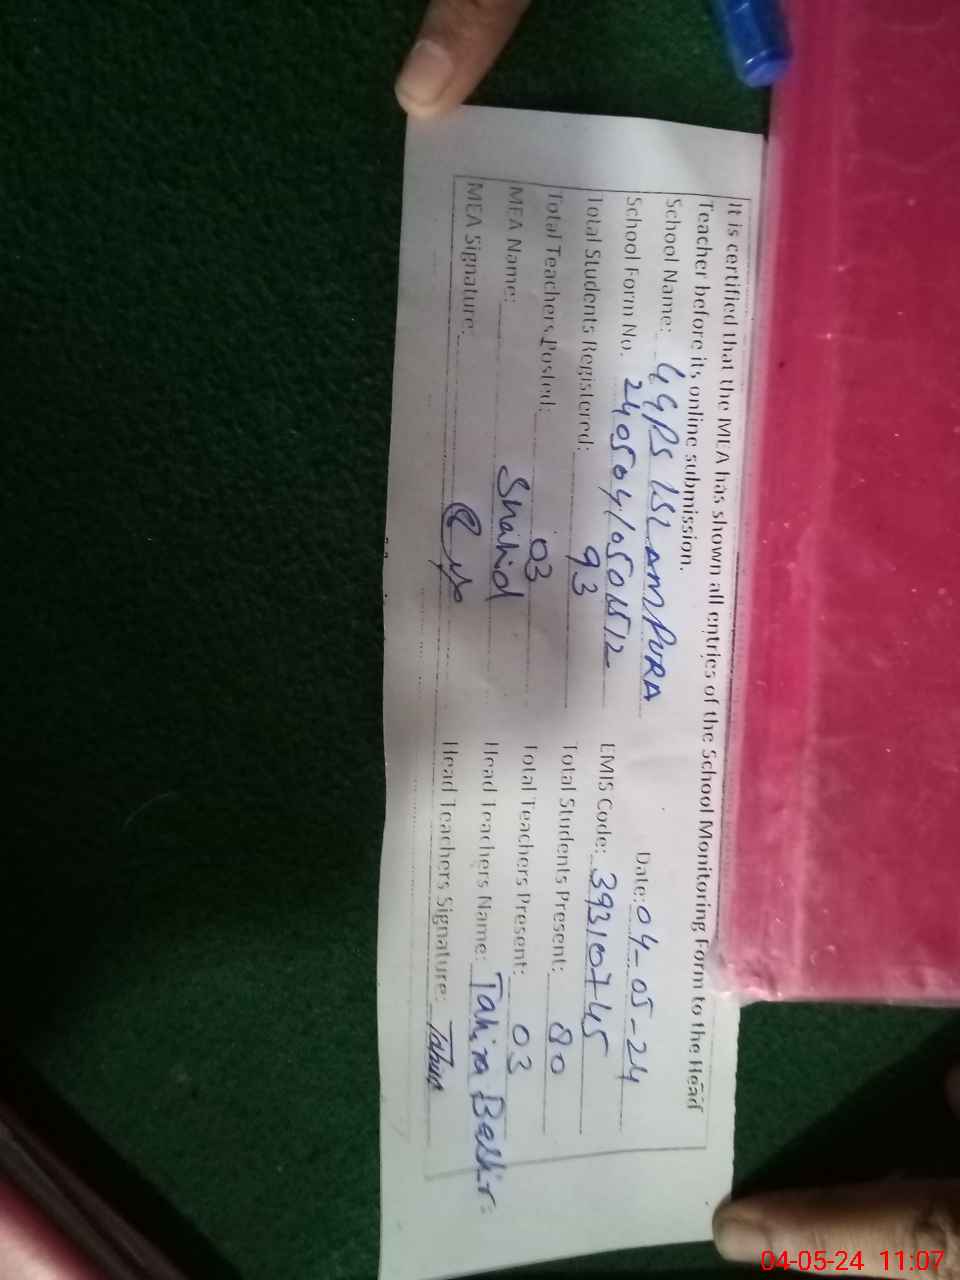 It is certified that the MEA has shown all entries of the School Monitoring Form to the Head
Teacher before its online submission.
Date: 04-05-24
School Name: GGPS ISLAMPURA
School Form No. EMIS Code: 39310745
Total Students Registered: 93 Total Students Present: 80
Total Teachers Posted: 03 Total Teachers Present: 03
MEA Name: Shahid Head Teachers Name: Tahira Bashir
MEA Signature: Head Teachers Signature: Tahira
04-05-24 11:07